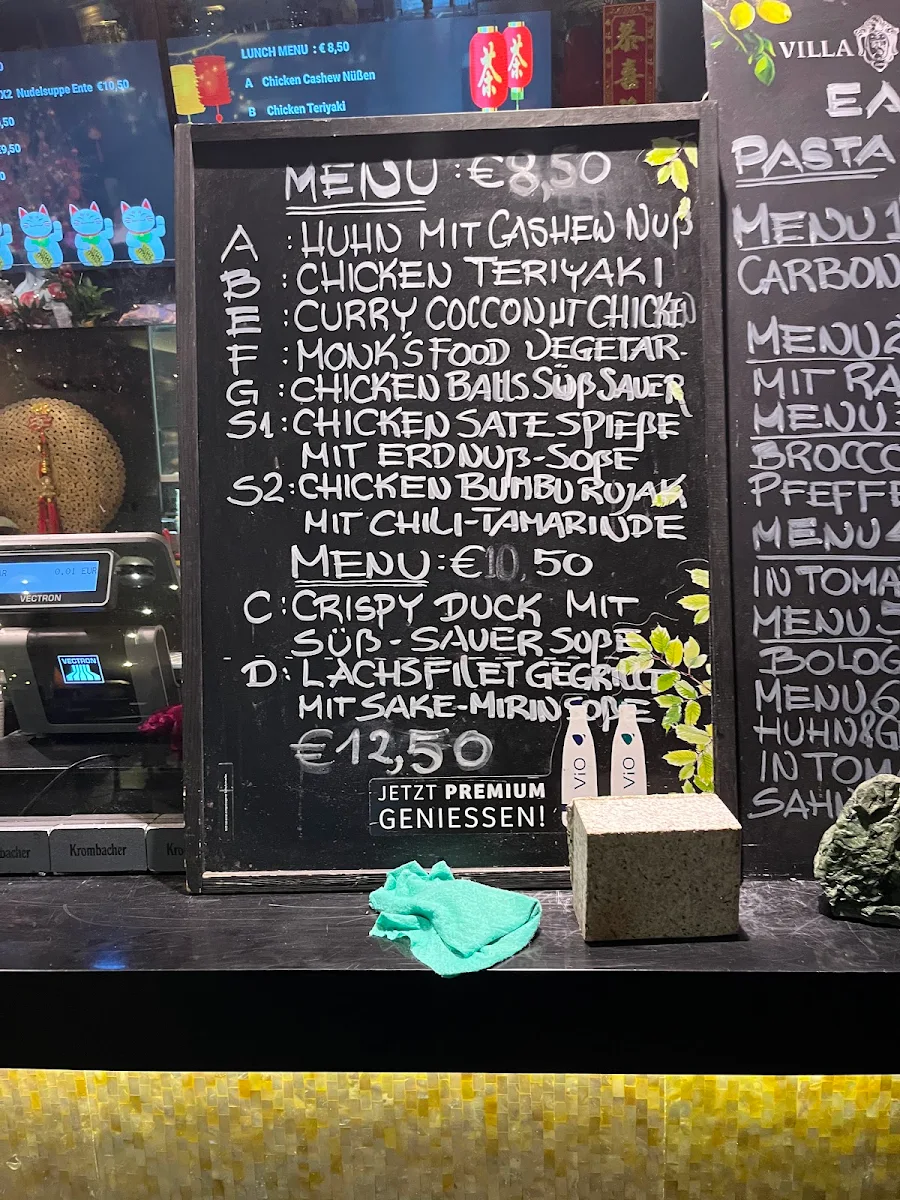 X2 Nudelsuppe Ente €10,50
LUNCH MENU : € 8,50
A Chicken Cashew Nüßen
B Chicken Teriyaki
茶
茶
恭
喜
MENU : €8,50
A : HUHN MIT CASHEW NUß
B : CHICKEN TERIYAKI
E : CURRY COCCONUT CHICKEN
F : MONK'S FOOD VEGETAR.
G : CHICKEN BALLS SÜß SAUER
S1 : CHICKEN SATE SPIEßE
MIT ERDNUß-SOßE
S2 : CHICKEN BUMBU RUJAK
MIT CHILI-TAMARINDE
MENU : €10,50
C : CRISPY DUCK MIT
SÜß-SAUER SOßE
D : LACHSFILET GEGRILLT
MIT SAKE-MIRIN SOßE
€12,50
JETZT PREMIUM
GENIESSEN!
ViO
ViO
VILLA
EA
PASTA
MENU 1
CARBON
MENU 2
MIT RA
MENU 3
BROCCO
PFEFFE
MENU 4
IN TOMA
MENU 5
BOLOG
MENU 6
HUHN&G
IN TOM
SAHN
0,01 EUR
VECTRON
VECTRON
bacher
Krombacher
Kro